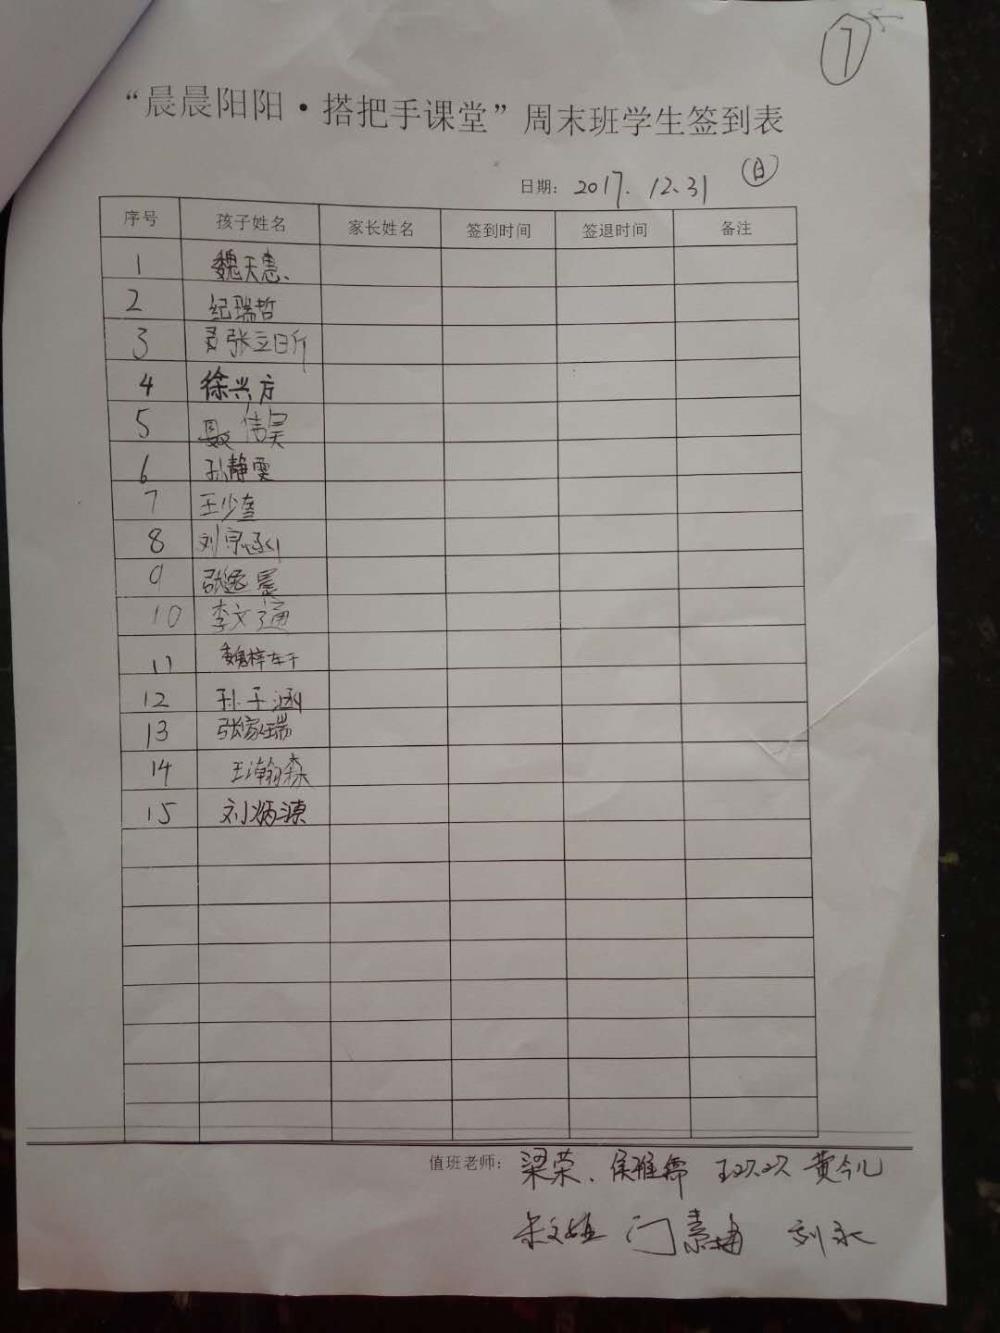 7
“晨晨阳阳·搭把手课堂”周末班学生签到表
日期: 2017.12.31 日
序号 孩子姓名 家长姓名 签到时间 签退时间 备注
1 魏天惠、
2 纪瑞哲
3 张立日斤
4 徐兴方
5 聂伟昊
6 孙静雯
7 王少奎
8 刘宗涵
9 张逸晨
10 李文通
11 魏梓
12 孙子涵
13 张家瑞
14 王瀚森
15 刘炳源
值班老师: 梁荣、侯雅 王欢欢 黄今儿
宋文 门素 刘永